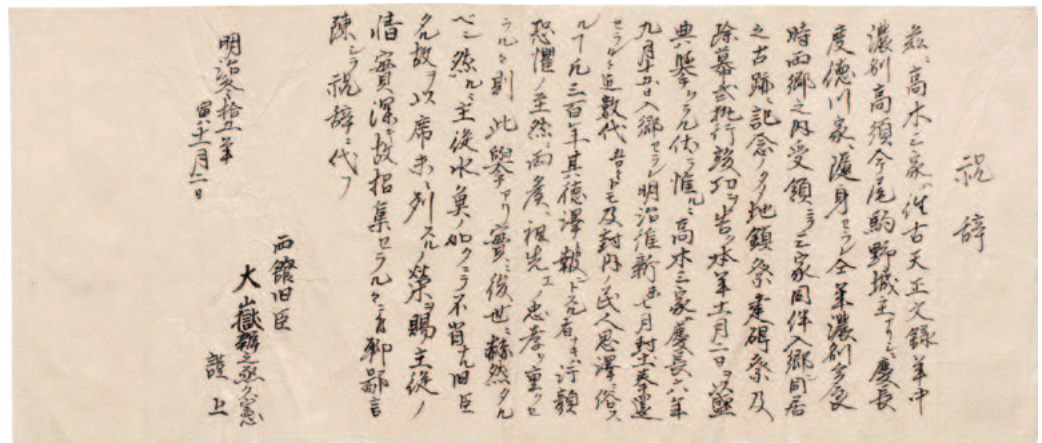 祝辞
茲ニ高木三家ハ往古天正文録年中
濃州高須今尾駒野城主タリシニ慶長
度徳川家ニ随身セラレ全年濃州多良
時両郷之内受領ニテ三家同伴入郷同居
之古跡ニ記念ノタメ地鎮祭建碑祭及
除幕式執行竣功ヲ告ケ本年十一月二日ヲ以盛
典挙ケラル伏テ惟ルニ高木三家ハ慶長六年
九月十五日入郷セラレ明治維新 月封土奉還
セラルヽ迄数代 及封内ノ民人恩澤ニ浴ス
ルコト凡三百年其徳澤報ント 者ナキハ
恐懼ノ至然ニ両 祖先エノ忠孝ヲ重ンセ
ラルヽ則此挙アリ實ニ後世ニ赫然タル
ベシ然ルニ主従水魚ノ如クニテ不肖ナル旧臣
タル故ヲ以席末ニ列スルノ榮ヲ賜主従ノ
情實深キ故招集セラルヽニ 聊鄙言
陳シテ祝辞ニ代フ
明治参拾五年
寅十一月二日
西舘旧臣
大嶽
謹上